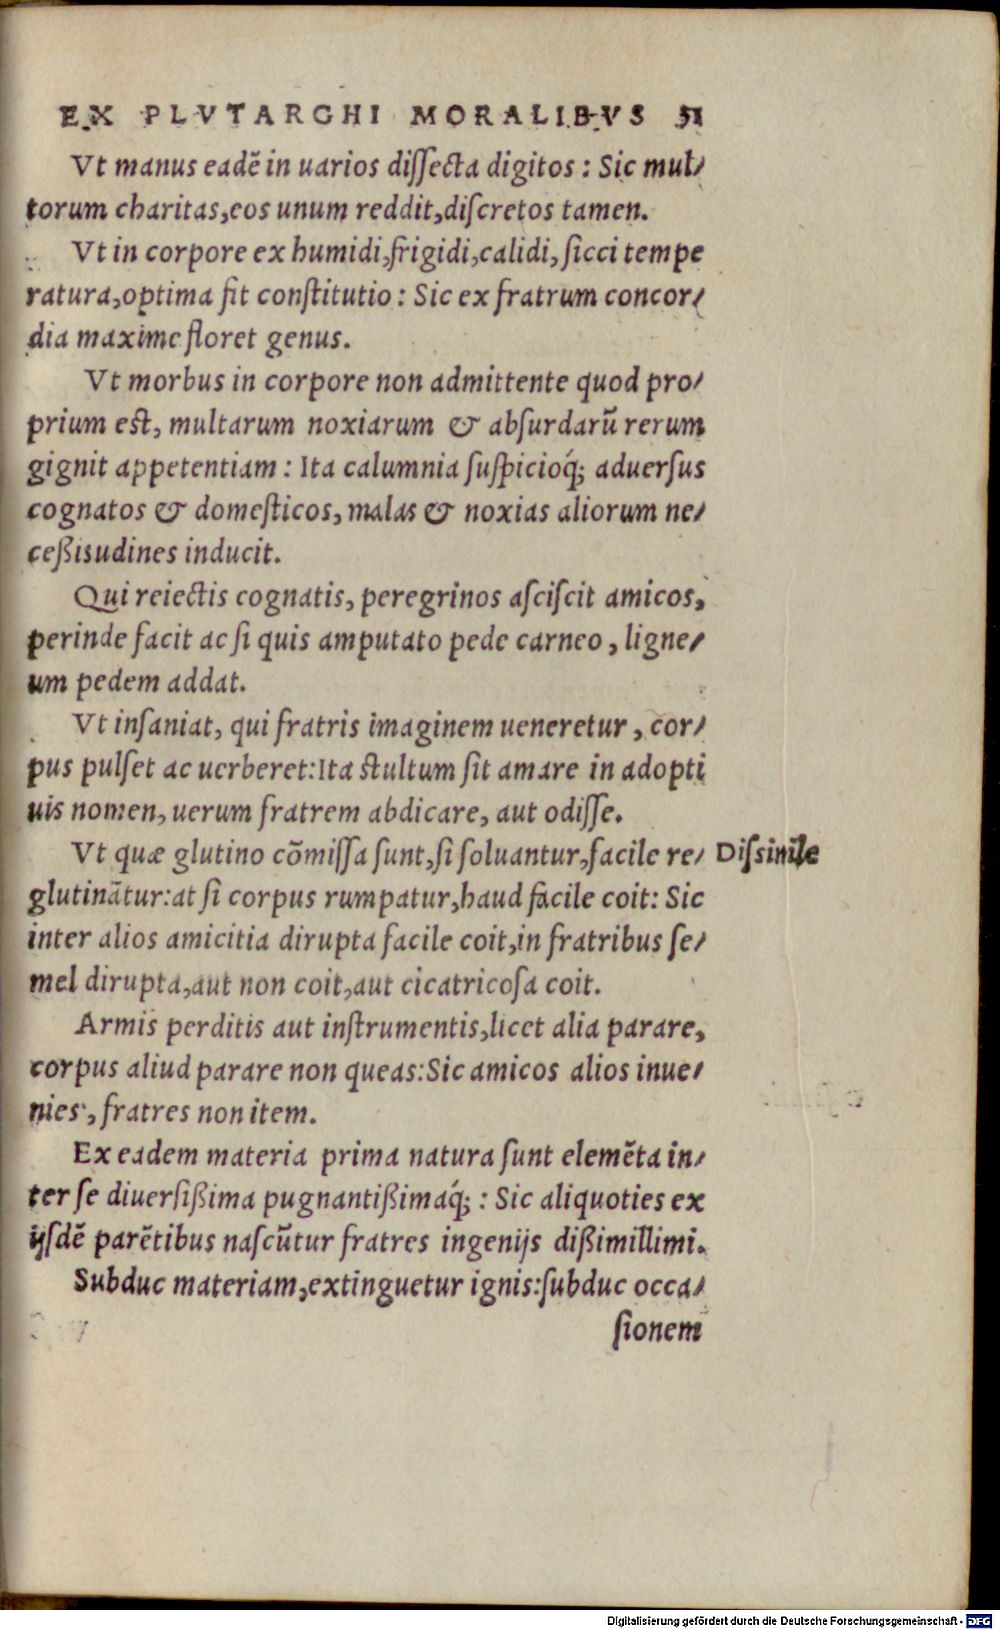 EX PLVTARCHI MORALIBVS 51
Vt manus eadē in uarios diſſecta digitos : Sic mul⸗
torum charitas, eos unum reddit, diſcretos tamen.
Vt in corpore ex humidi, frigidi, calidi, ſicci tempe
ratura, optima fit conſtitutio : Sic ex fratrum concor⸗
dia maxime floret genus.
Vt morbus in corpore non admittente quod pro⸗
prium est, multarum noxiarum & abſurdarū rerum
gignit appetentiam : Ita calumnia ſuſpicioq́; aduerſus
cognatos & domeſticos, malas & noxias aliorum ne⸗
ceßisudines inducit.
Qui reiectis cognatis, peregrinos aſciſcit amicos,
perinde facit ac ſi quis amputato pede carneo, ligne⸗
um pedem addat.
Vt inſaniat, qui fratris imaginem ueneretur, cor⸗
pus pulſet ac uerberet: Ita ſtultum ſit amare in adopti
uis nomen, uerum fratrem abdicare, aut odiſſe.
Vt quæ glutino cōmiſſa ſunt, ſi ſoluantur, facile re⸗ Diſsimile
glutinātur: at ſi corpus rumpatur, haud facile coit: Sic
inter alios amicitia dirupta facile coit, in fratribus ſe⸗
mel dirupta, aut non coit, aut cicatricoſa coit.
Armis perditis aut inſtrumentis, licet alia parare,
corpus aliud parare non queas: Sic amicos alios inue⸗
nies, fratres non item.
Ex eadem materia prima natura ſunt elemēta in⸗
ter ſe diuerſißima pugnantißimaq́; : Sic aliquoties ex
ijſdē parētibus naſcūtur fratres ingenijs dißimillimi.
Subduc materiam, extinguetur ignis: ſubduc occa⸗
ſionem
Digitalisierung gefördert durch die Deutsche Forschungsgemeinschaft - DFG